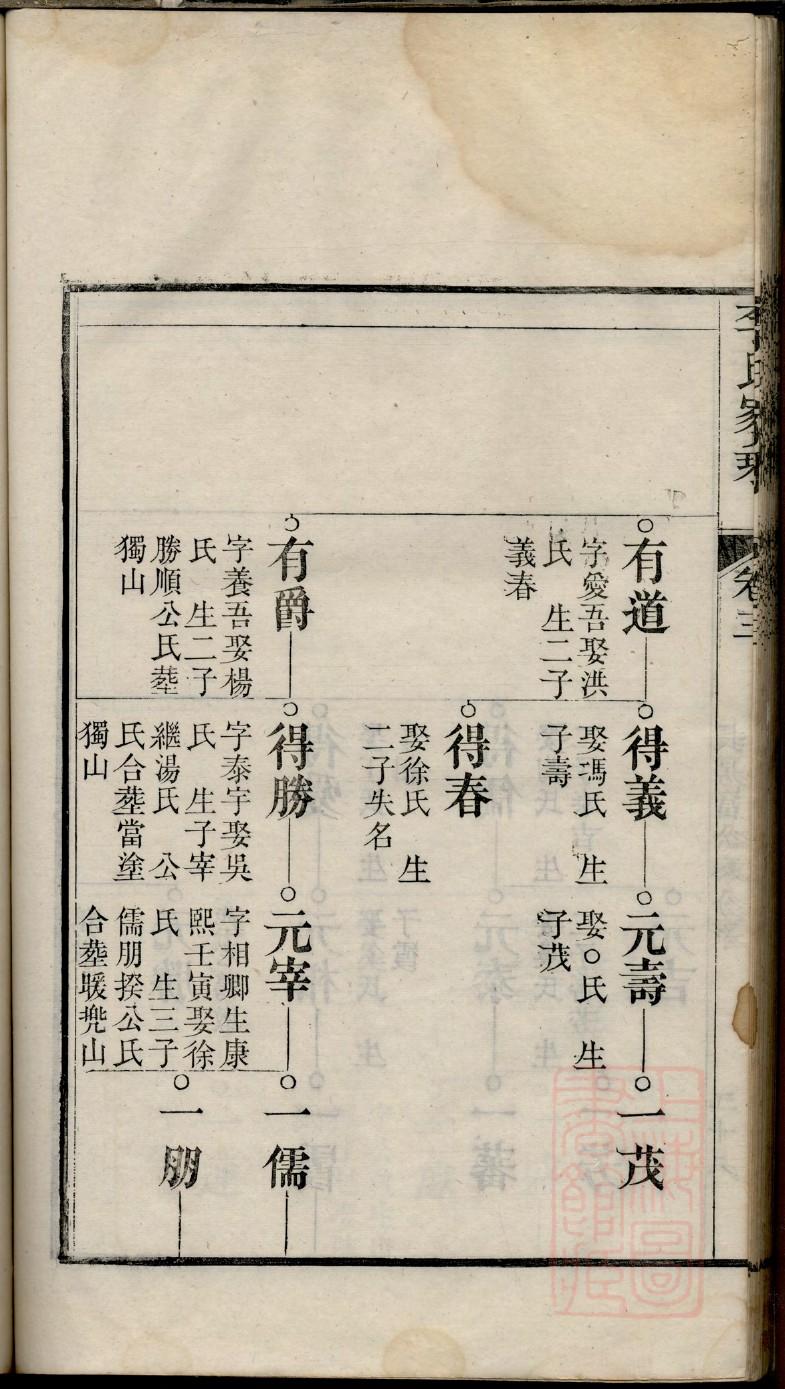 李氏家乘
卷三
有道
字愛吾娶洪
氏　生二子
義春
得義
娶馮氏　生
子壽
元壽
娶○氏　生
子茂
一茂
得春
娶徐氏　生
二子失名
有爵
字養吾娶楊
氏　生二子
勝順公氏塟
獨山
得勝
字泰宇娶吳
氏　生子宰
繼湯氏　公
氏合塟當塗
獨山
元宰
字相卿生康
熙壬寅娶徐
氏　生三子
儒朋揆公氏
合塟暖兠山
一儒
一朋